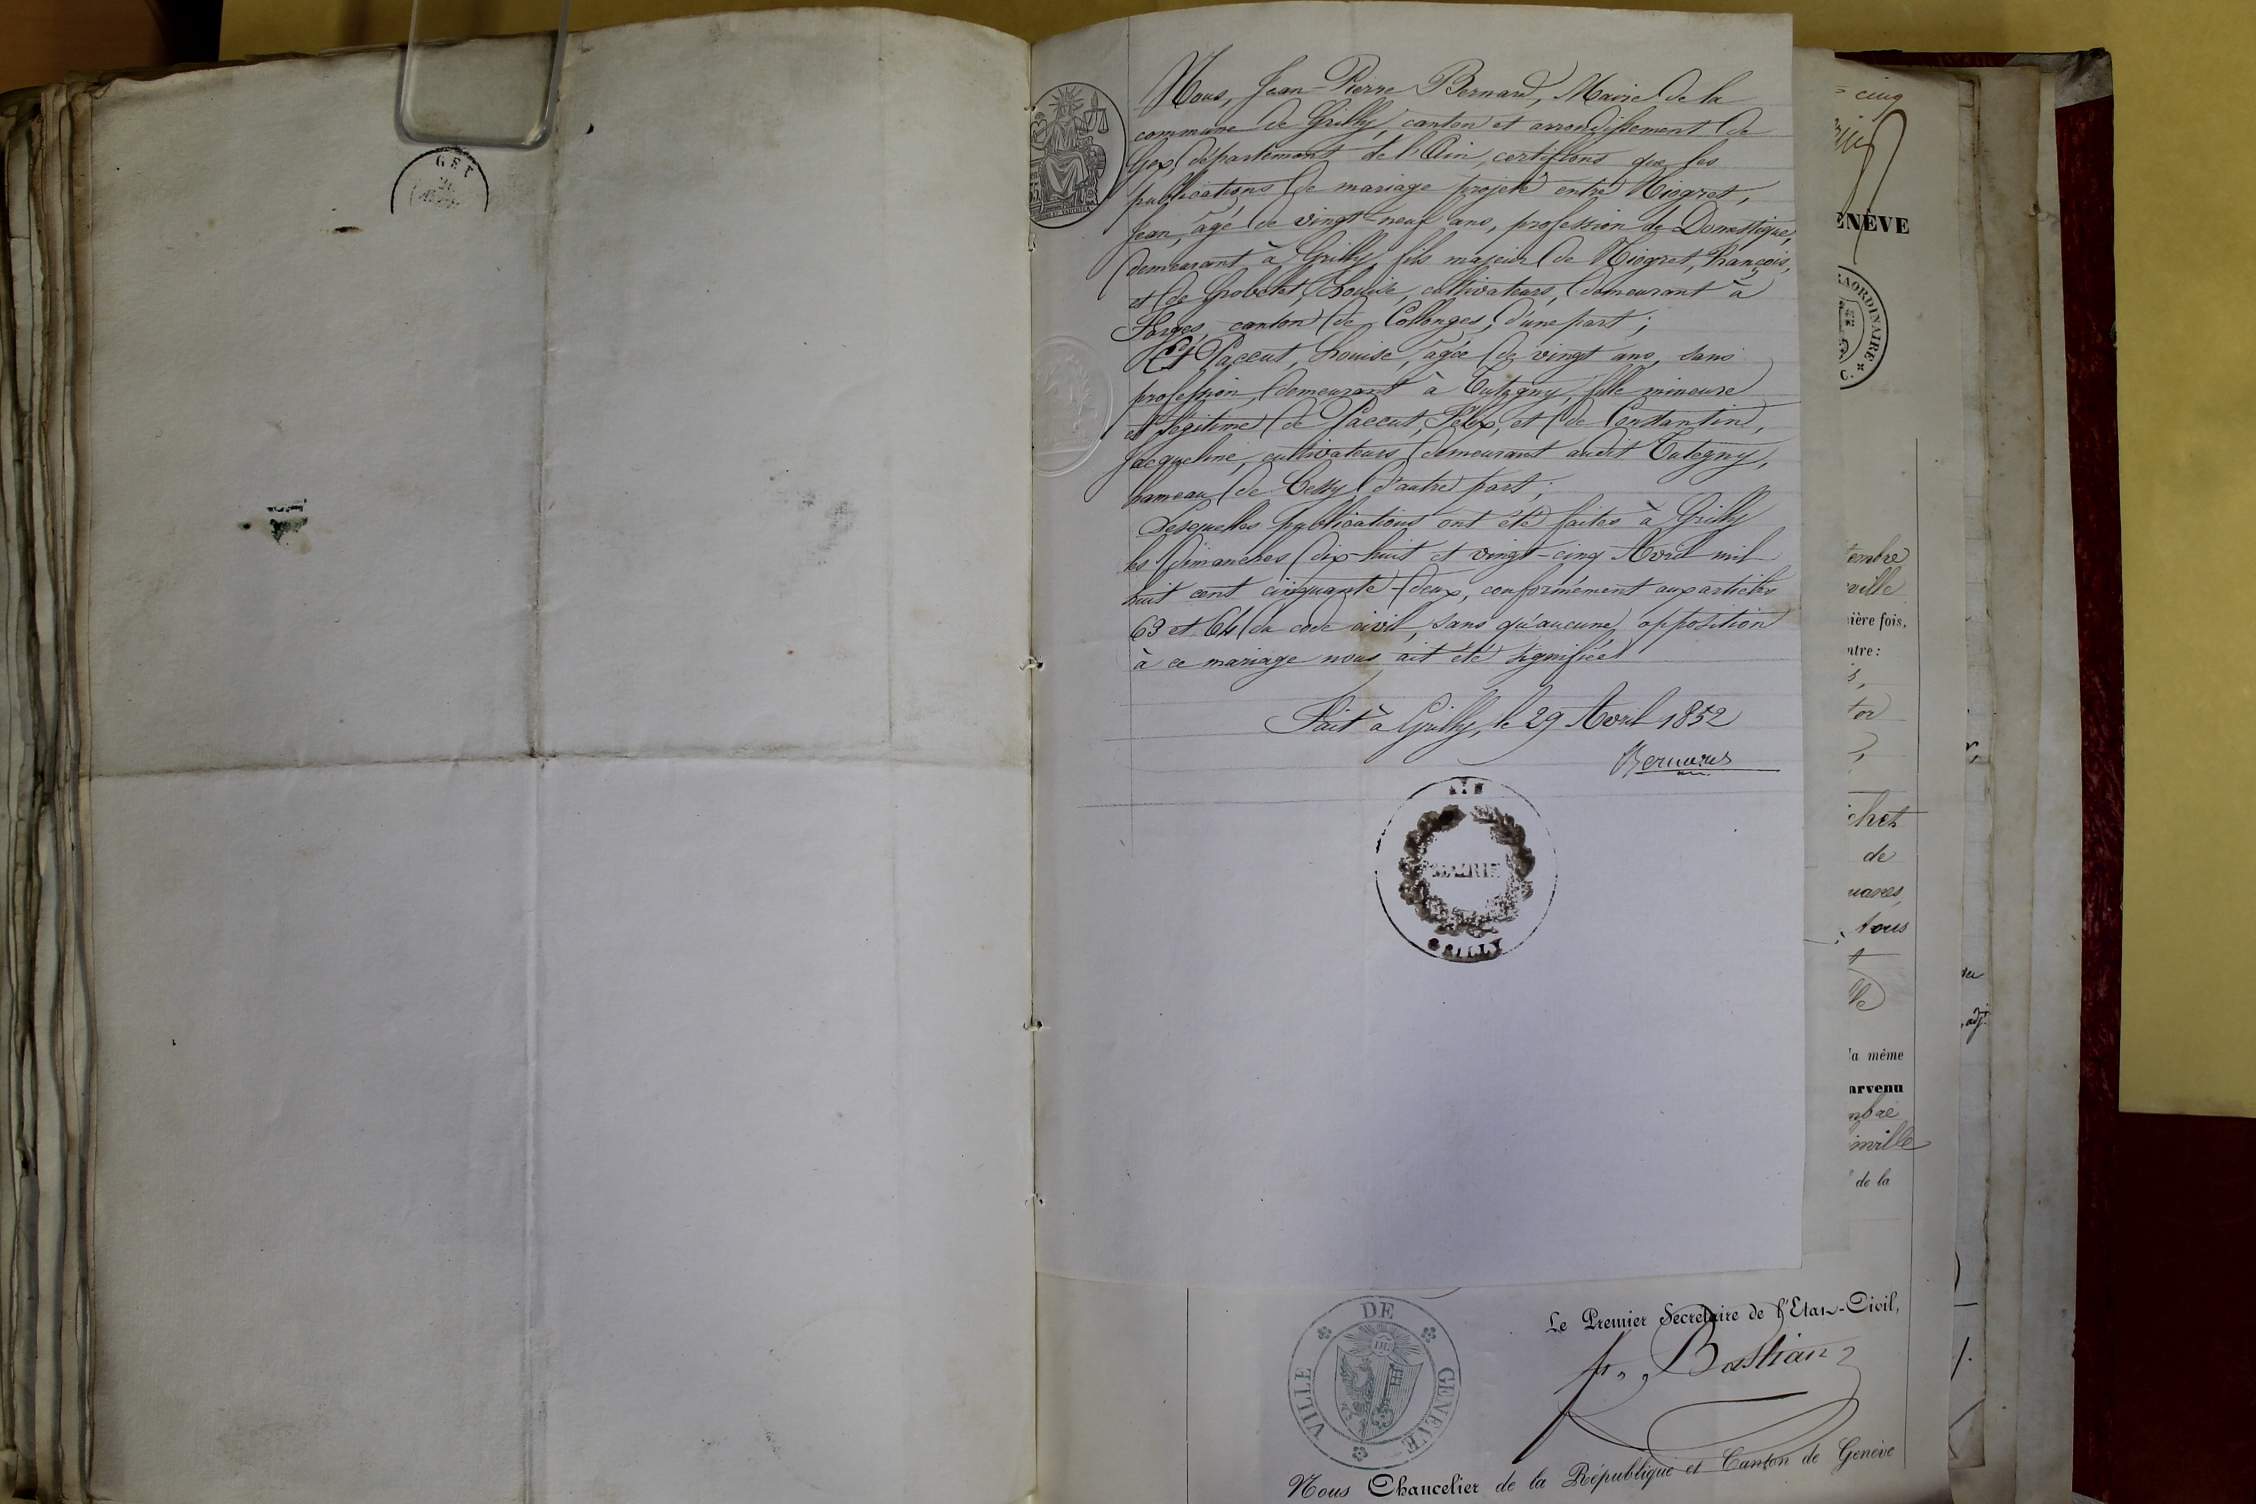 GEX
Nous, Jean-Pierre Bernard, Maire de la
commune de Grilly, canton et arrondissement de
Gex, département de l'Ain, certifions que les
publications de mariage projeté entre Niogret,
Jean, âgé de vingt-neuf ans, profession de Domestique,
demeurant à Grilly, fils majeur de Niogret, François,
et de Grobetet, Louise, cultivateurs, demeurant à
Farges, canton de Collonges, d'une part;
Et Paccut, Louise, âgée de vingt ans, sans
profession, demeurant à Tutegny, fille mineure
et légitime de Paccut, Félix, et de Constantin,
Jacqueline, cultivateurs demeurant audit Tutegny,
hameau de Cessy d'autre part;
Lesquelles publications ont été faites à Grilly
les dimanches dix-huit et vingt-cinq Avril mil
huit cent cinquante-deux, conformément aux articles
63 et 64 du code civil, sans qu'aucune opposition
à ce mariage nous ait été signifiée.
Fait à Grilly, le 29 Avril 1852
Bernard
AIN
MAIRIE
GRILLY
cinq
ENÈVE
AORDINAIRE
C.
tembre
ville
ière fois,
ntre:
tor
chet
de
nares,
tous
la même
arvenu
mbre
inville
de la
adj.
VILLE DE GENÈVE
Le Premier Secrétaire de l'Etat-Civil,
Bastian
Nous Chancelier de la République et Canton de Genève